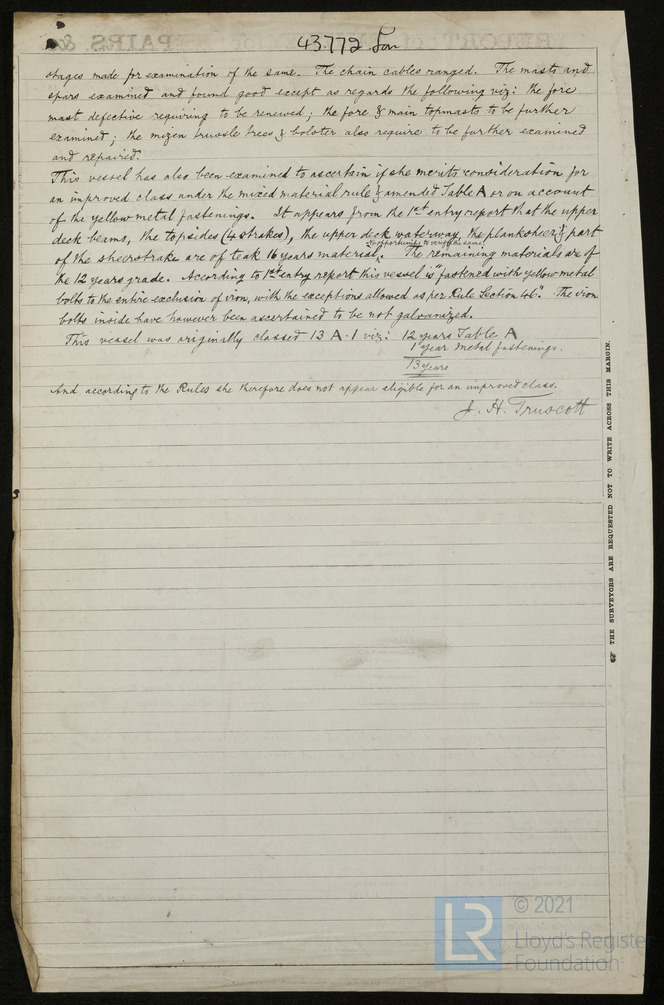 43772 Lon
stages made for examination of the same. The chain cables ranged. The masts and
spars examined and found good except as regards the following viz: the fore
mast defective requiring to be renewed; the fore & main topmasts to be further
examined; the mizen trussle trees & bolster also require to be further examined
and repaired.
This vessel has also been examined to ascertain if she merits consideration for
an improved class under the mixed material rule & amended Table A or on account
of the yellow metal fastenings. It appears from the 1st entry report that the upper
deck beams, the topsides (4 strakes), the upper deck waterway, the plank sheer & part
no opportunity to verify the same.
of the sheerstrake are of teak 16 years material. The remaining materials are of
the 12 years grade. According to 1st entry report this vessel is "fastened with yellow metal
bolts to the entire exclusion of iron, with the exceptions allowed as per Rule Section 46". The iron
bolts inside have however been ascertained to be not galvanized.
This vessel was originally classed 13 A.1 viz: 12 years Table A
1 year metal fastenings.
13 years
And according to the Rules she therefore does not appear eligible for an improved class.
J. H. Truscott
THE SURVEYORS ARE REQUESTED NOT TO WRITE ACROSS THIS MARGIN.
LR
© 2021
Lloyd's Register
Foundation